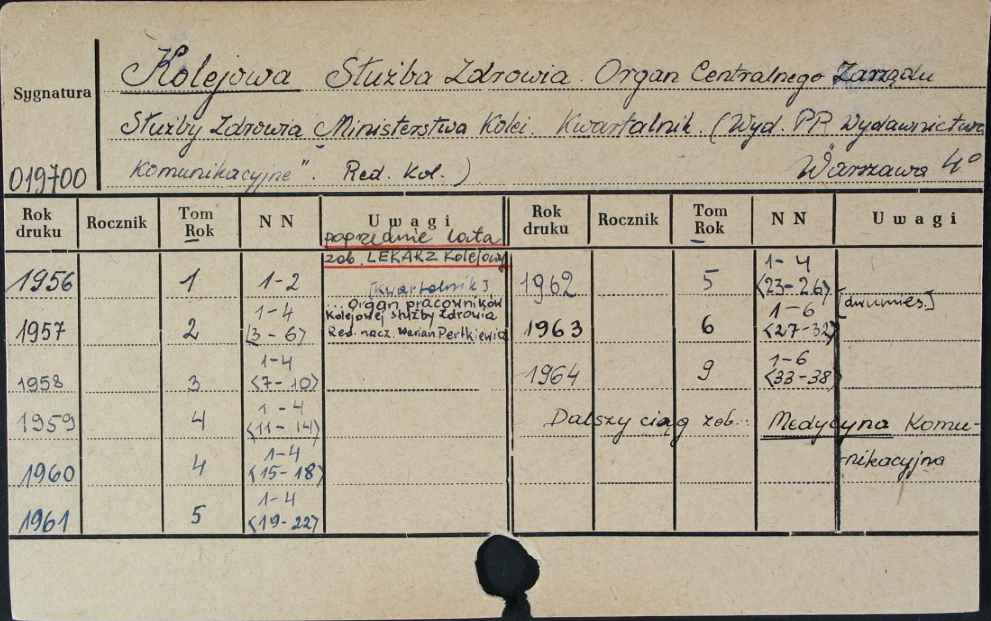 Sygnatura
019700
Kolejowa Służba Zdrowia. Organ Centralnego Zarządu
Służby Zdrowia Ministerstwa Kolei. Kwartalnik. (Wyd. PP. Wydawnictwa
Komunikacyjne". Red. Kol.) Warszawa 4°
Rok druku Rocznik Tom Rok NN Uwagi Rok druku Rocznik Tom Rok NN Uwagi
poprzednie lata
zob. LEKARZ Kolejowy
1956 1 1-2
[Kwartalnik]
...organ pracowników
Kolejowej służby zdrowia
Red. nacz. Marian Pertkiewicz
1957 2 1-4 <3-6>
1958 3 1-4 <7-10>
1959 4 1-4 <11-14>
1960 4 1-4 <15-18>
1961 5 1-4 <19-22>
1962 5 1-4 <23-26>
[dwumies.]
1963 6 1-6 <27-32>
1964 9 1-6 <33-38>
Dalszy ciąg zob.: Medycyna Komu-
nikacyjna